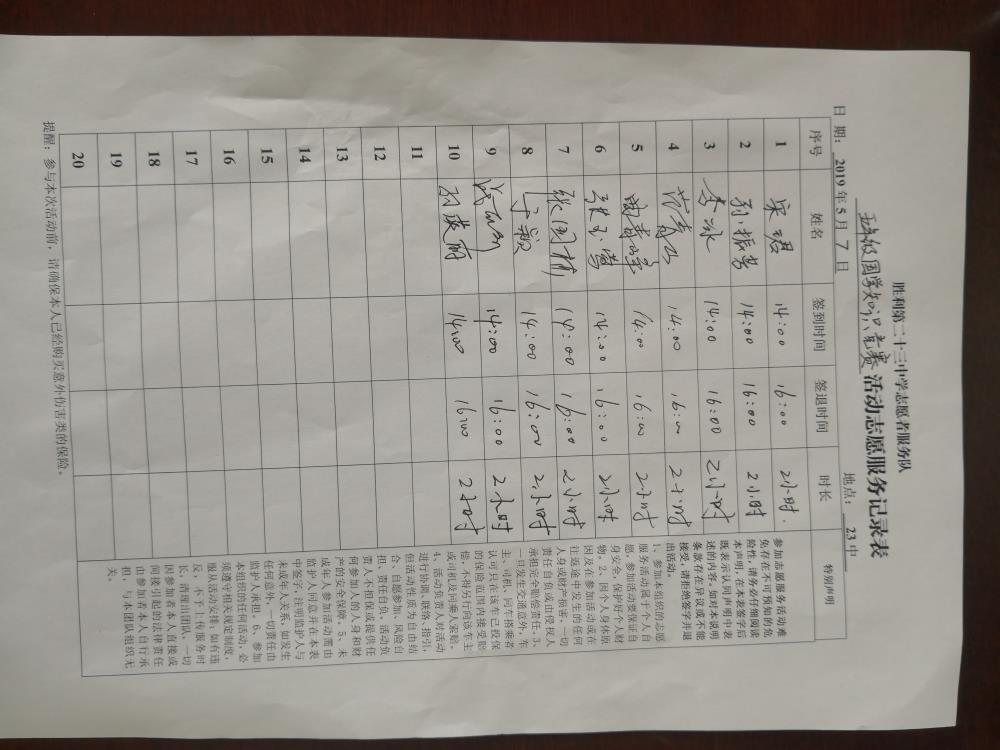 胜利第二十三中学志愿者服务队
班级国学知识竞赛活动志愿服务记录表
日 期： 2019 年 5 月 7 日 地点： 23 中
序号 姓名 签到时间 签退时间 时长 特别声明
1 宋珺 14:00 16:00 2小时.
2 孙振芳 14:00 16:00 2小时
3 李冰 14:00 16:00 2小时
4 14:00 16:00 2小时
5 14:00 16:00 2小时
6 张玉莺 14:00 16:00 2小时
7 张国楠 14:00 16:00 2小时
8 于颖 14:00 16:00 2小时
9 14:00 16:00 2小时
10 孙英丽 14:00 16:00 2小时
11
12
13
14
15
16
17
18
19
20
参加志愿服务活动难
免存在不可预知的危
险性,请务必仔细阅读
本声明,在本表签字后
既表示认同声明中表
述的内容,如对本说明
条款存在异议或不能
接受,请拒绝签字并退
出活动。
1、参加本组织的志愿
服务活动属于个人自
愿,参加活动要保证自
身安全、保护好个人财
物。2、因个人身体原
因及在参加活动或在
往返途中发生的任何
人身或财产损害,一切
责任自负或由侵权人
承担完全赔偿责任。3、
一旦发生交通意外,车
主、司机、同车搭乘者
认可只在该车已投保
的保险范围内接受赔
偿,不得另行向该车主
或司机及同乘人索赔。
4、活动负责人对活动
进行协调、联络、指引,
但活动性质为自由结
合、自愿参加、风险自
担、责任自负。活动负
责人不担保或提供任
何参加人的人身和财
产的安全保障。5、未
成年人参加活动需由
监护人同意并在本表
中签字,注明监护人与
未成年人关系,如发生
任何意外,一切责任由
监护人承担。6、参加
本组织的任何活动,必
须遵守相关规定制度,
服从活动安排;如有违
反,不予上传服务时
长,清理出团队。一切
因参加者本人直接或
间接引起的法律责任
由参加者本人自行承
担,与本团队组织无
关。
提醒：参与本次活动前，请确保本人已经购买意外伤害类的保险。